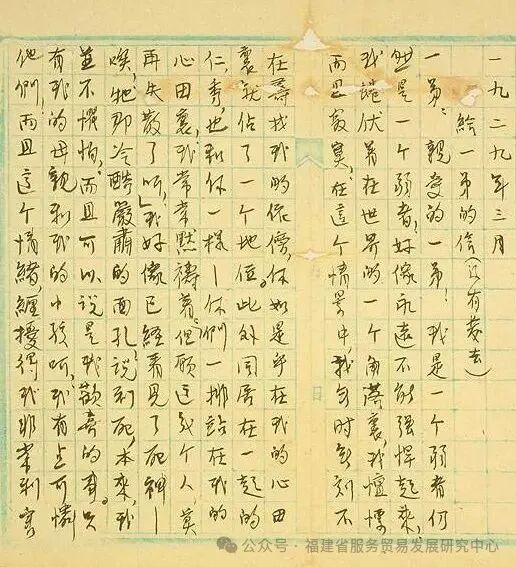 一九二九年三月
給一弟的信(没有發去)
一弟:親愛的一弟!我是一个弱者仍
然是一个弱者,好像永遠不能强悍起來。
我蜷伏着在世界的一个角落裏,我惶悸
而且寂寞,在這个情景中,我無时無刻不
在尋找我的偶像,你如是乎在我的心田
裏就佔了一个地位。此外同居在一起的
仁,秀,也和你一樣—你們一排站在我的
心田裏。我常常默禱着:但願這幾个人,莫
再失散了呀!我好像已經看見了死神—
唉,牠那冷酷嚴肅的面孔!說到死,本來,我
並不懼怕,而且可以說是我歡喜的事。只
有我的母親和我的小孩呵,我有点可憐
他們,而且這个情緒,纏擾得我非常利害
公众号 · 福建省服务贸易发展研究中心